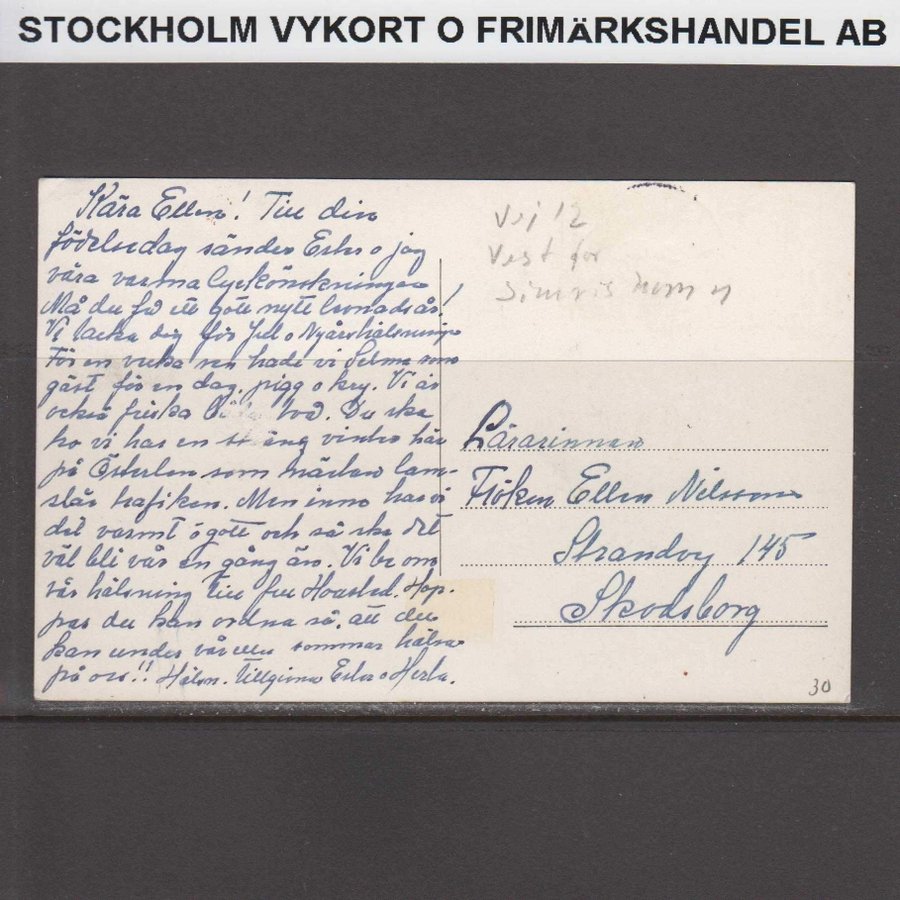 STOCKHOLM VYKORT O FRIMÄRKSHANDEL AB
Kära Ellen! Till din
födelsedag sänder Ester o jag
våra varma lyckönskningar
Må du få ett gott nytt levnadsår!
Vi tacka dig för Jul o Nyårshälsning.
För en vecka sen hade vi Selma som
gäst för en dag, pigg o kry. Vi är
också friska båda två. Du ska
tro vi har en sträng vinter här
på Österlen som nästan lam-
slår trafiken. Men inne har vi
det varmt o gott och så ska det
väl bli vår en gång än. Vi be om
vår hälsning till fru Hoasted. Hop-
pas du kan ordna så, att du
kan under våren sommar hälsa
på oss!! Hälsn. Tillgivna Ester o
Vej 12
Vest for
Simris
Lärarinnan
Fröken Ellen Nilsson
Strandvej 145
Skodsborg
30